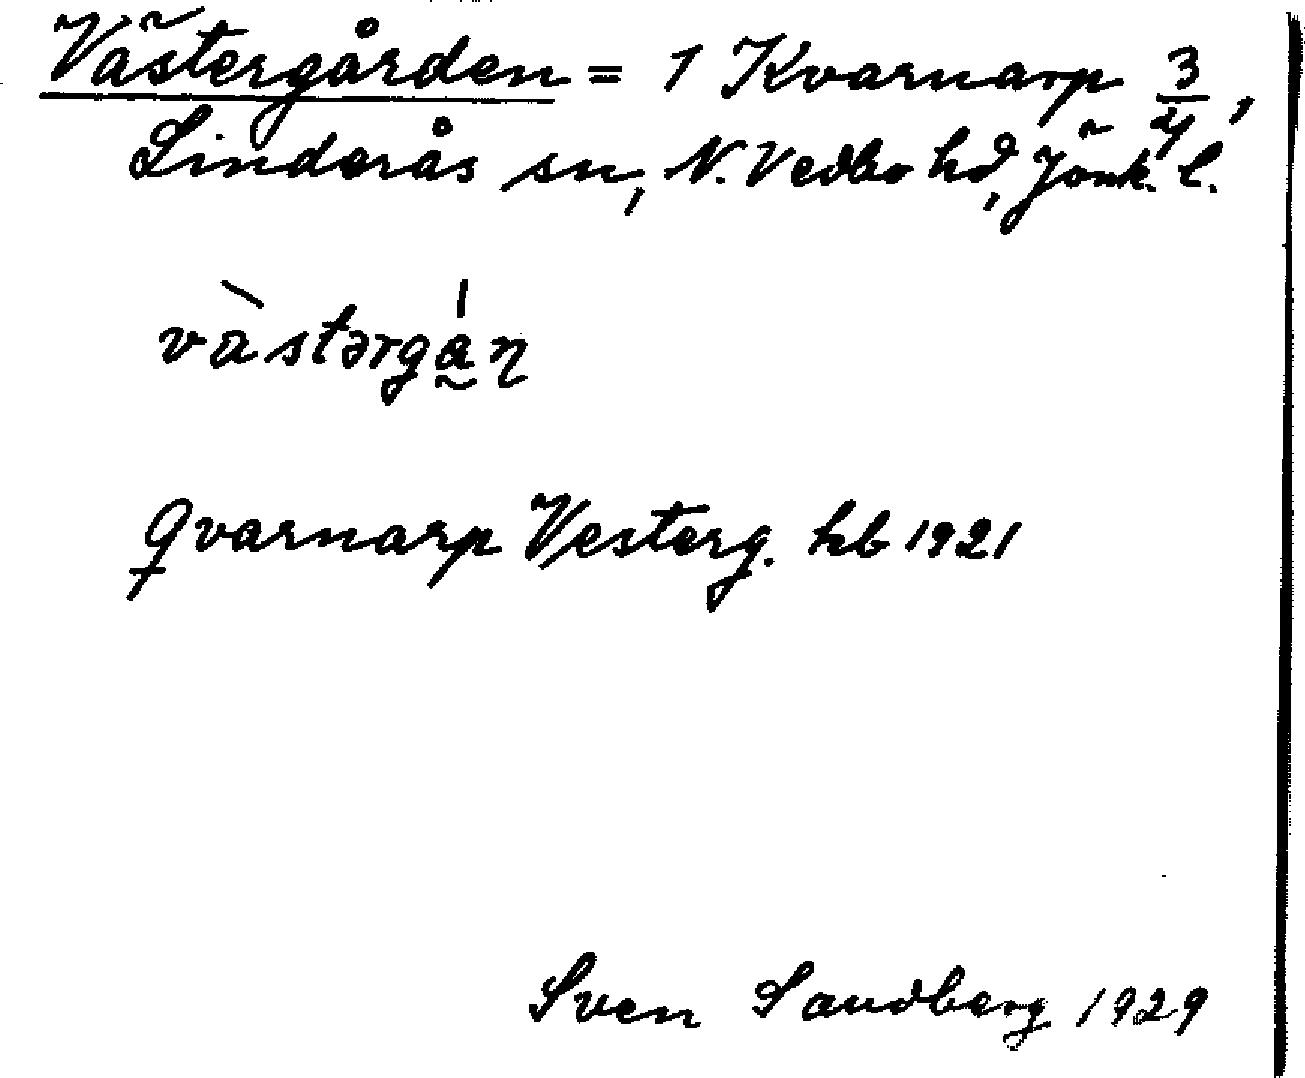 Västergården = 1 Kvarnarp 3/4,
Linderås sn, N. Vedbo hd, Jönk. l.
västərgån
Qvarnarp Vesterg. hb 1921
Sven Sandberg 1929